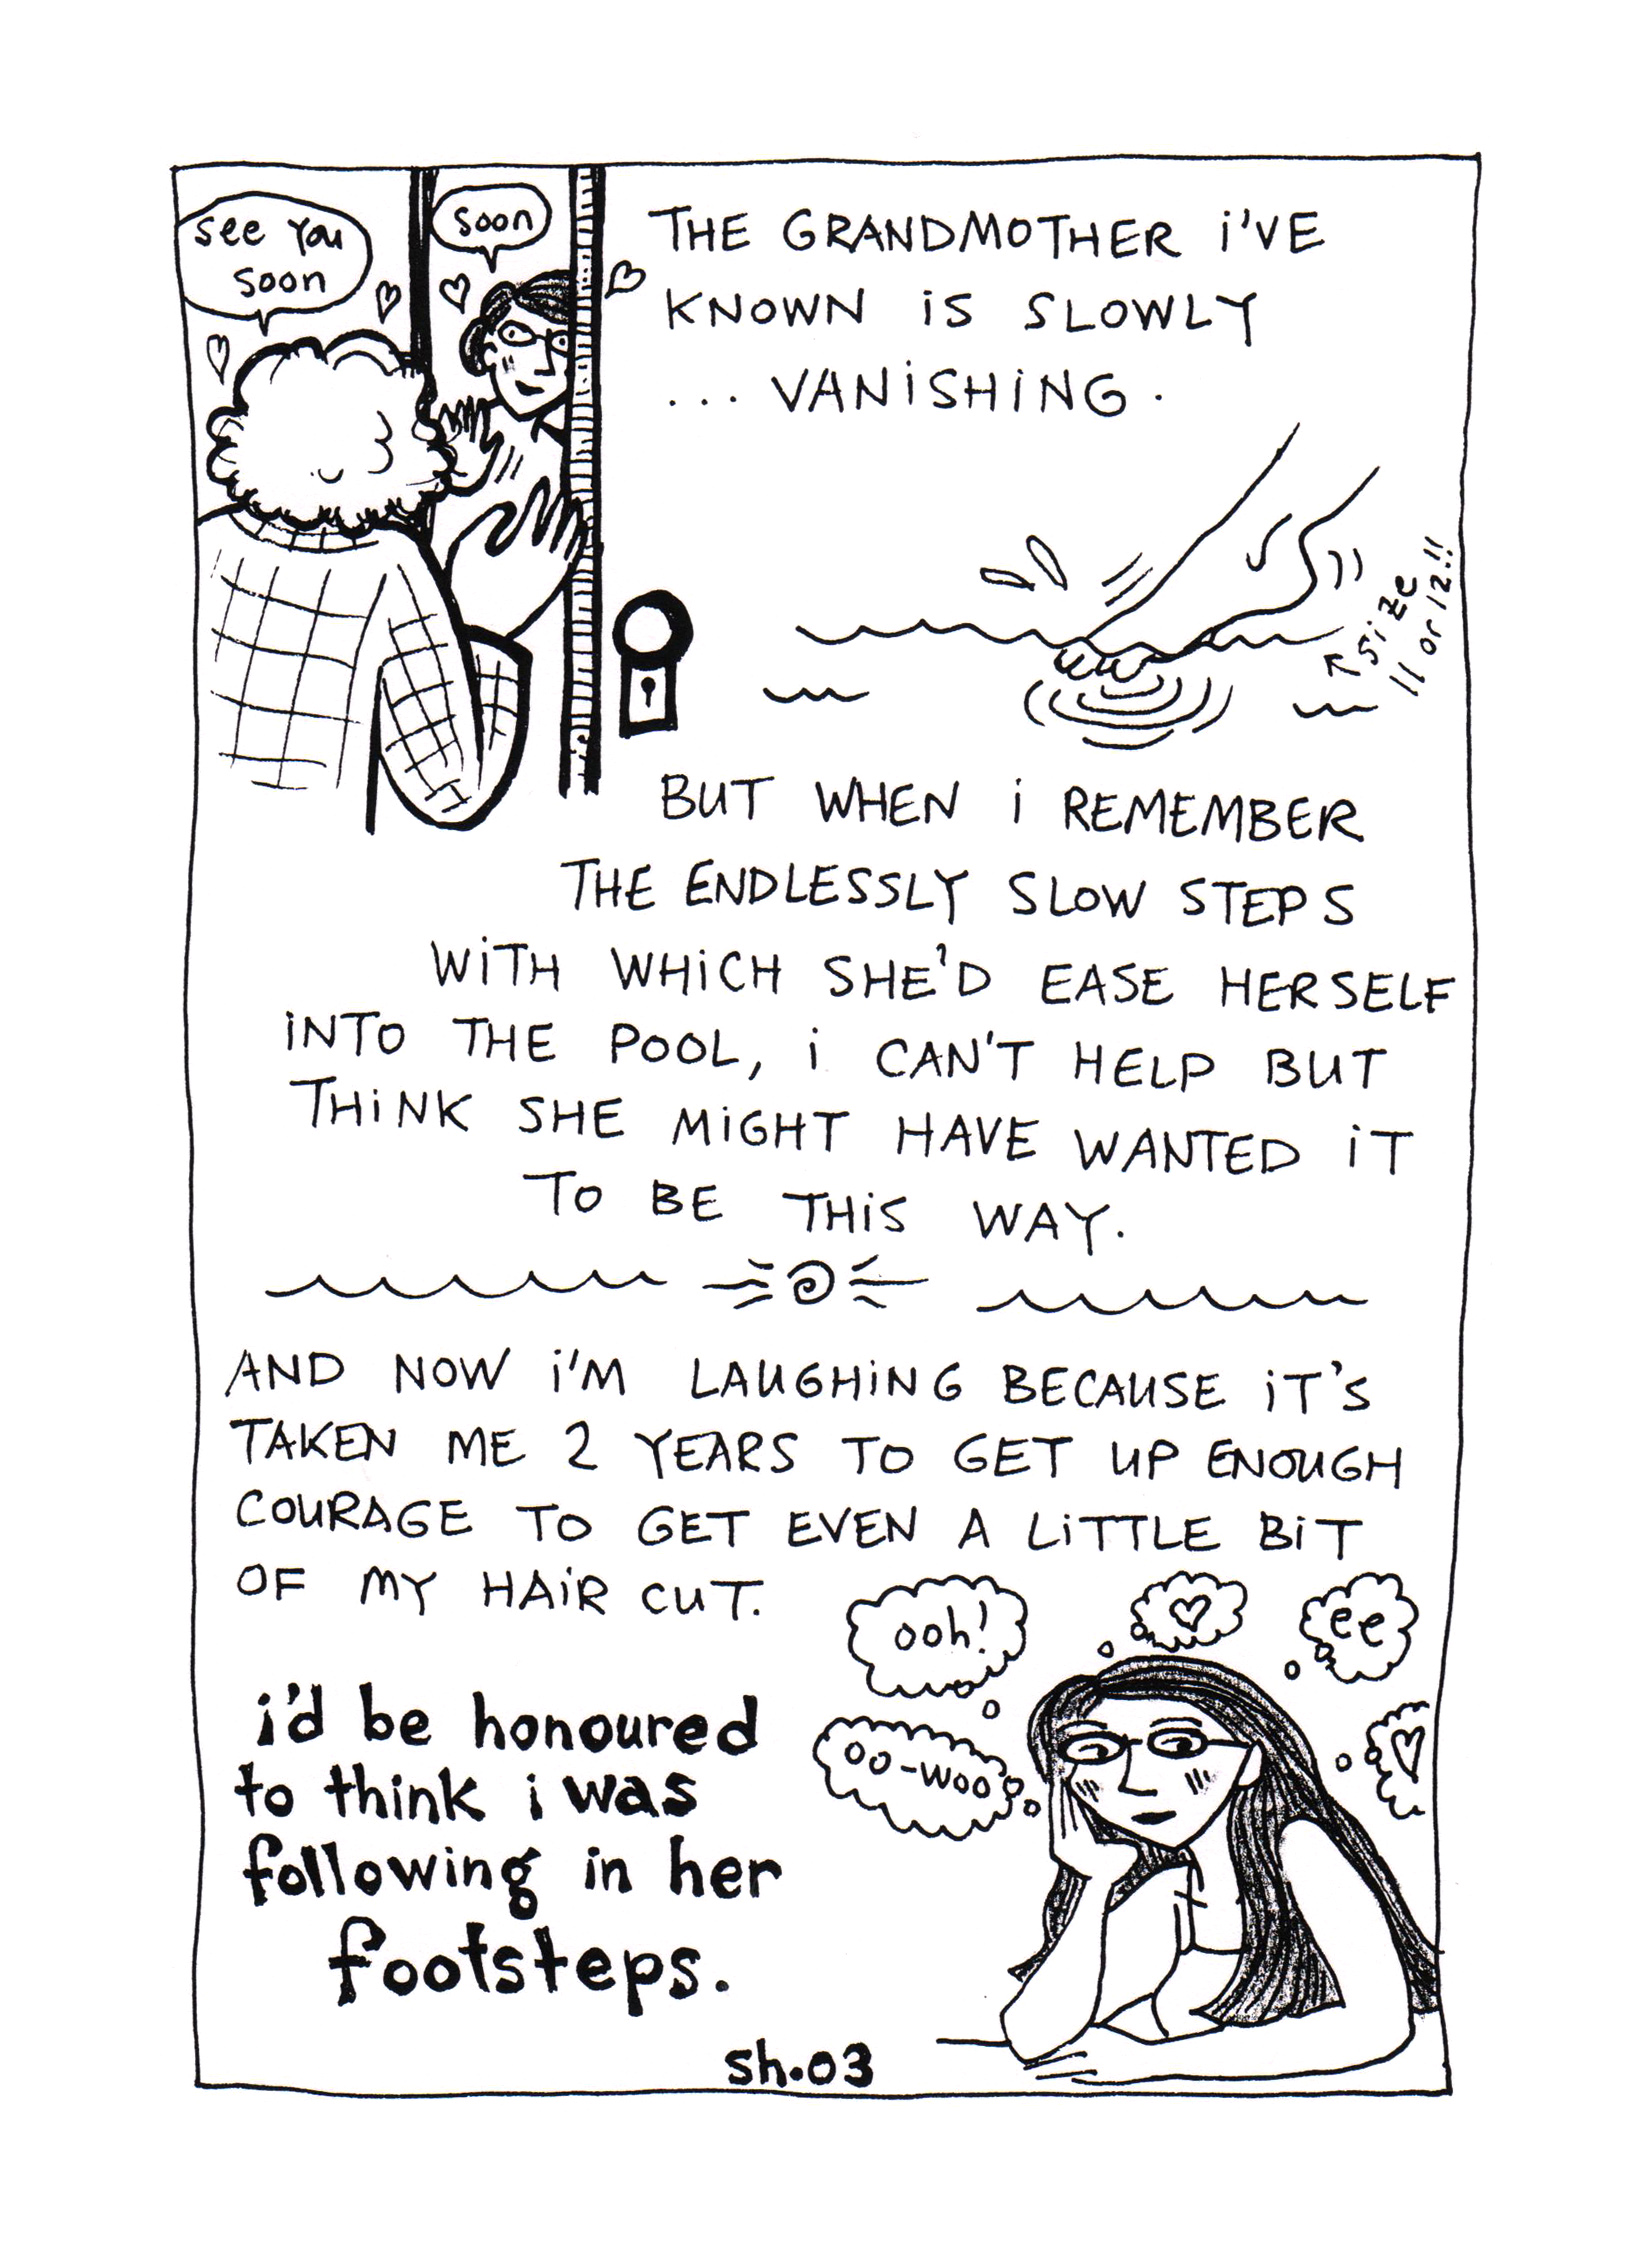 see you
soon
soon
THE GRANDMOTHER i'VE
KNOWN iS SLOWLY
... VANiSHiNG.
size
11 or 12!!
BUT WHEN i REMEMBER
THE ENDLESSLY SLOW STEPS
WiTH WHiCH SHE'D EASE HERSELF
iNTO THE POOL, i CAN'T HELP BUT
THiNK SHE MiGHT HAVE WANTED iT
TO BE THiS WAY.
AND NOW i'M LAUGHiNG BECAUSE iT'S
TAKEN ME 2 YEARS TO GET UP ENOUGH
COURAGE TO GET EVEN A LiTTLE BiT
OF MY HAiR CUT.
ooh!
ee
oo-woo
i'd be honoured
to think i was
following in her
footsteps.
sh.03